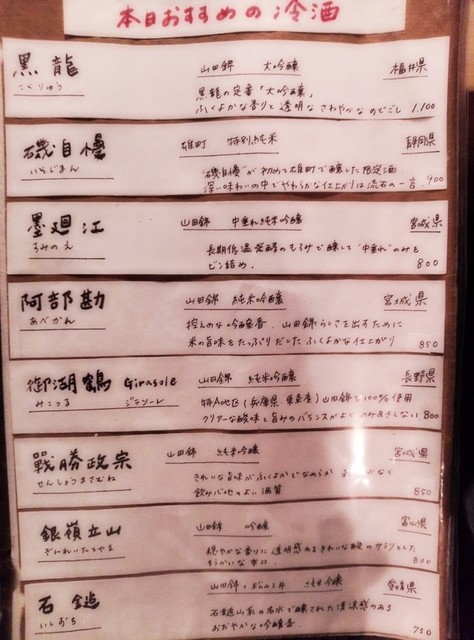 本日おすすめの冷酒
黒龍 山田錦 大吟醸 福井県
こくりゅう 黒龍の定番「大吟醸」
ふくよかな香りと透明なさわやかなのどごし 1,100
磯自慢 雄町 特別純米 静岡県
いそじまん "磯自慢"が初めて雄町で醸した限定酒
深い味わいの中でやわらかな仕上がりは流石の一言 900
墨廼江 山田錦 中垂れ純米吟醸 宮城県
すみのえ 長期低温発酵のもろみで醸して"中垂れ"のみを
ビン詰め。 800
阿部勘 山田錦 純米吟醸 宮城県
あべかん 控えめな吟醸香。山田錦らしさを出すために
米の旨味をたっぷりだしたふくよかな仕上がり 850
御湖鶴 Girasole 山田錦 純米吟醸 長野県
みこつる ジラソーレ 特A地区(兵庫県 東条産)山田錦で100%使用
クリアーな酸味と旨みのバランスがよくのみあきしない 800
戦勝政宗 山田錦 純米吟醸 宮城県
せんしょうまさむね きれいな旨味がふくよかでなめらか がなく
飲み心地のよい酒質 850
銀嶺立山 山田錦 吟醸 富山県
ぎんれいたてやま 穏やかな香りに透明感あるきれいな酸のサラリとした
辛口。 800
石鎚 山田錦・松山三井 純米吟醸 愛媛県
いしづち 石鎚山系の名水で醸された清涼感のある
おだやかな吟醸香。 750